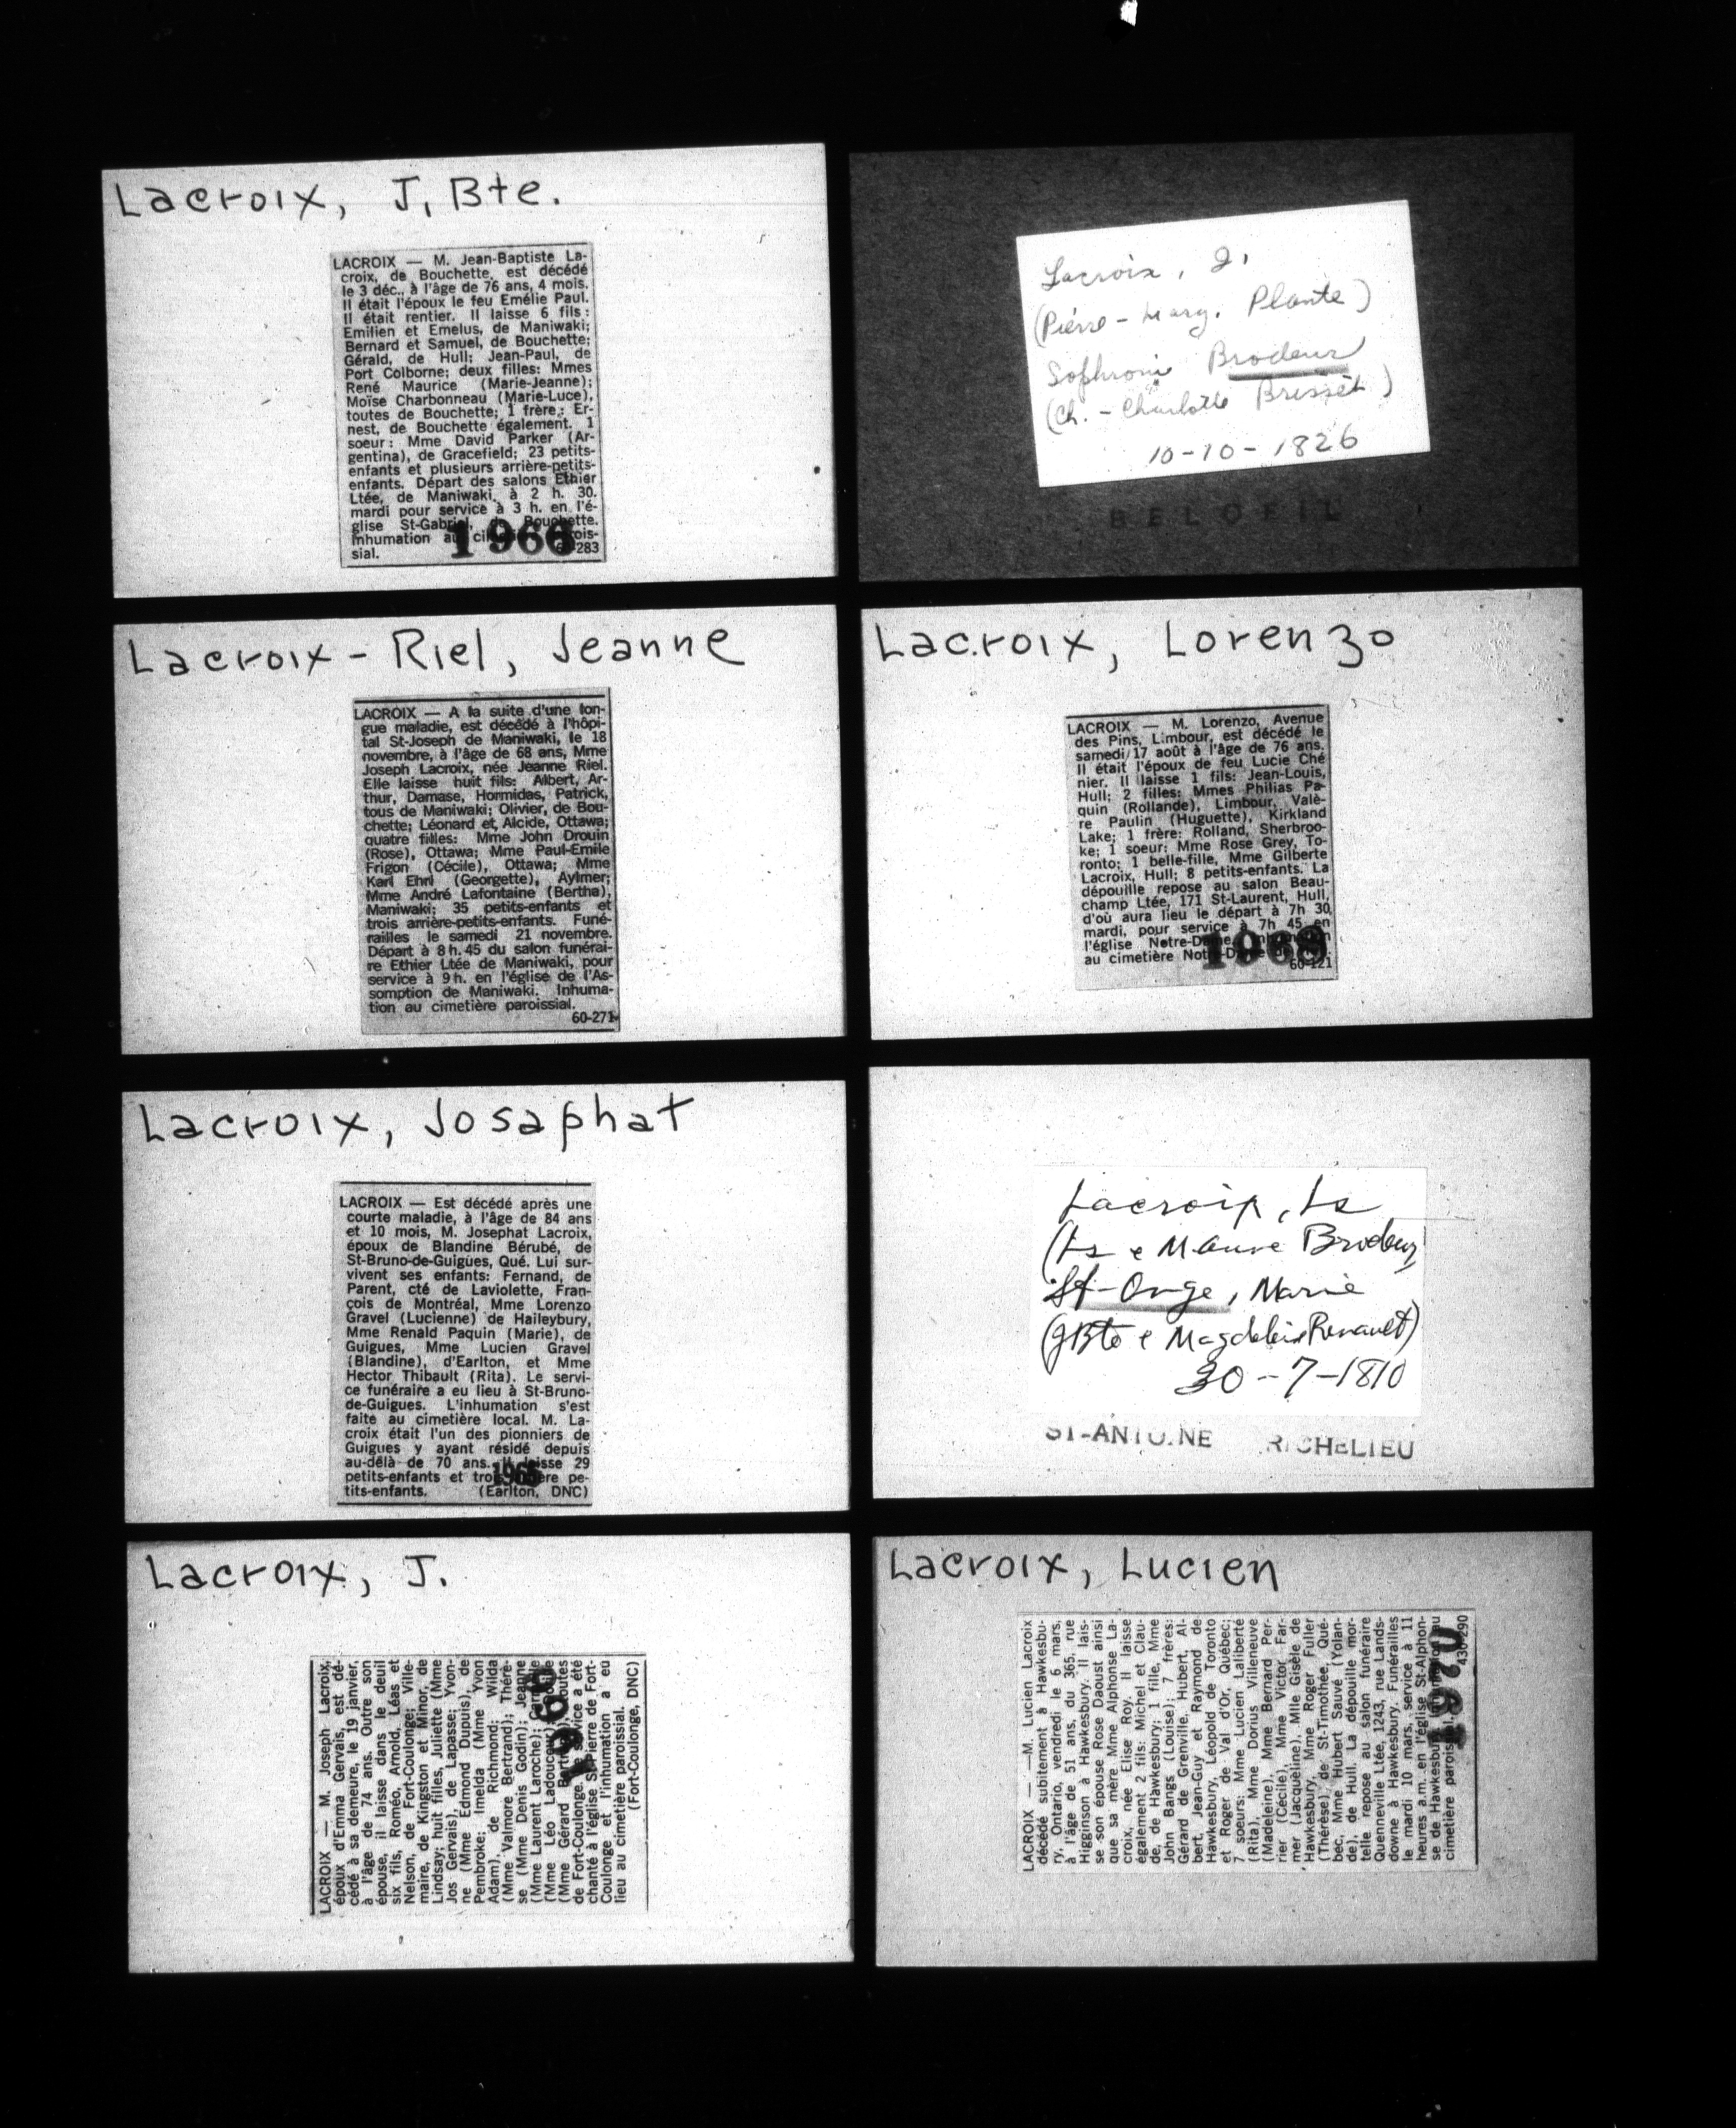 Lacroix, J, Bte.
LACROIX — M. Jean-Baptiste La-
croix, de Bouchette, est décédé
le 3 déc., à l'âge de 76 ans, 4 mois.
Il était l'époux le feu Emélie Paul.
Il était rentier. Il laisse 6 fils:
Emilien et Emelus, de Maniwaki;
Bernard et Samuel, de Bouchette;
Gérald, de Hull; Jean-Paul, de
Port Colborne; deux filles: Mmes
René Maurice (Marie-Jeanne);
Moïse Charbonneau (Marie-Luce),
toutes de Bouchette; 1 frère: Er-
nest, de Bouchette également. 1
soeur: Mme David Parker (Ar-
gentina), de Gracefield; 23 petits-
enfants et plusieurs arrière-petits-
enfants. Départ des salons Ethier
Ltée, de Maniwaki, à 2 h. 30.
mardi pour service à 3 h. en l'é-
glise St-Gabriel, de Bouchette.
Inhumation au
sial.
1966
Lacroix, J,
(Pierre - Marg. Plante)
Sophronie Brodeur
(Ch. - Charlotte Brisset)
10-10-1826
BELOEIL
Lacroix - Riel, Jeanne
LACROIX — A la suite d'une lon-
gue maladie, est décédé à l'hôpi-
tal St-Joseph de Maniwaki, le 18
novembre, à l'âge de 68 ans, Mme
Joseph Lacroix, née Jeanne Riel.
Elle laisse huit fils: Albert, Ar-
thur, Damase, Hormidas, Patrick,
tous de Maniwaki; Olivier, de Bou-
chette; Léonard et Alcide, Ottawa;
quatre filles: Mme John Drouin
(Rose), Ottawa; Mme Paul-Emile
Frigon (Cécile), Ottawa; Mme
Karl Ehrl (Georgette), Aylmer;
Mme André Lafontaine (Bertha),
Maniwaki; 35 petits-enfants et
trois arrière-petits-enfants. Funé-
railles le samedi 21 novembre.
Départ à 8 h. 45 du salon funérai-
re Ethier Ltée de Maniwaki, pour
service à 9 h. en l'église de l'As-
somption de Maniwaki. Inhuma-
tion au cimetière paroissial.
60-271
Lacroix, Lorenzo
LACROIX — M. Lorenzo, Avenue
des Pins, Limbour, est décédé le
samedi 17 août à l'âge de 76 ans.
Il était l'époux de feu Lucie Ché
nier. Il laisse 1 fils: Jean-Louis,
Hull; 2 filles: Mmes Philias Pa-
quin (Rollande), Limbour, Valè-
re Paulin (Huguette), Kirkland
Lake; 1 frère: Rolland, Sherbroo-
ke; 1 soeur: Mme Rose Grey, To-
ronto; 1 belle-fille, Mme Gilberte
Lacroix, Hull; 8 petits-enfants. La
dépouille repose au salon Beau-
champ Ltée, 171 St-Laurent, Hull,
d'où aura lieu le départ à 7h 30,
mardi, pour service à 7h 45 en
l'église Notre-Dame.
au cimetière
1968
60-121
Lacroix, Josaphat
LACROIX — Est décédé après une
courte maladie, à l'âge de 84 ans
et 10 mois, M. Josephat Lacroix,
époux de Blandine Bérubé, de
St-Bruno-de-Guigues, Qué. Lui sur-
vivent ses enfants: Fernand, de
Parent, cté de Laviolette, Fran-
çois de Montréal, Mme Lorenzo
Gravel (Lucienne) de Haileybury,
Mme Renald Paquin (Marie), de
Guigues, Mme Lucien Gravel
(Blandine), d'Earlton, et Mme
Hector Thibault (Rita). Le servi-
ce funéraire a eu lieu à St-Bruno-
de-Guigues. L'inhumation s'est
faite au cimetière local. M. La-
croix était l'un des pionniers de
Guigues y ayant résidé depuis
au-delà de 70 ans. Il laisse 29
petits-enfants et trois arrière pe-
tits-enfants. (Earlton, DNC)
1965
Lacroix, Ls
(Ls e M. Anne Brodeur
St-Onge, Marie
(JBte e Magdeleine Renault)
30-7-1810
ST-ANTOINE RICHELIEU
Lacroix, J.
LACROIX — M. Joseph Lacroix,
époux d'Emma Gervais, est dé-
cédé à sa demeure, le 19 janvier,
à l'âge de 74 ans. Outre son
épouse, il laisse dans le deuil
six fils, Roméo, Arnold, Léas et
Nelson, de Fort-Coulonge; Ville-
maire, de Kingston et Minor, de
Lindsay; huit filles, Juliette (Mme
Jos Gervais), de Lapasse; Yvon-
ne (Mme Edmond Dupuis), de
Pembroke; Imelda (Mme Yvon
Adam), de Richmond; Wilda
(Mme Valmore Bertrand); Thérè-
se (Mme Denis Godin); Jeanne
(Mme Laurent Laroche);
(Mme Léo Ladouceur);
(Mme Gérard toutes
de Fort-Coulonge. Le service a été
chanté à l'église St-Pierre de Fort-
Coulonge et l'inhumation a eu
lieu au cimetière paroissial.
(Fort-Coulonge, DNC)
Lacroix, Lucien
LACROIX — M. Lucien Lacroix
décédé subitement à Hawkesbu-
ry, Ontario, vendredi le 6 mars,
à l'âge de 51 ans, du 365, rue
Higginson à Hawkesbury. Il lais-
se son épouse Rose Daoust ainsi
que sa mère Mme Alphonse La-
croix, née Elise Roy. Il laisse
également 2 fils: Michel et Clau-
de, de Hawkesbury; 1 fille, Mme
John Bangs (Louise); 7 frères:
Gérard de Grenville, Hubert, Al-
bert, Jean-Guy et Raymond de
Hawkesbury, Léopold de Toronto
et Roger de Val d'Or, Québec;
7 soeurs: Mme Lucien Laliberté
(Rita), Mme Dorius Villeneuve
(Madeleine), Mme Bernard Per-
rier (Cécile), Mme Victor Far-
mer (Jacqueline), Mlle Gisèle de
Hawkesbury, Mme Roger Fuller
(Thérèse), de St-Timothée, Qué-
bec, Mme Hubert Sauvé (Yolan-
de), de Hull. La dépouille mor-
telle repose au salon funéraire
Quenneville Ltée, 1243, rue Lands-
downe à Hawkesbury. Funérailles
le mardi 10 mars, service à 11
heures a.m. en l'église St-Alphon-
se de Hawkesbury. Inhumation au
cimetière paroissial.
1970